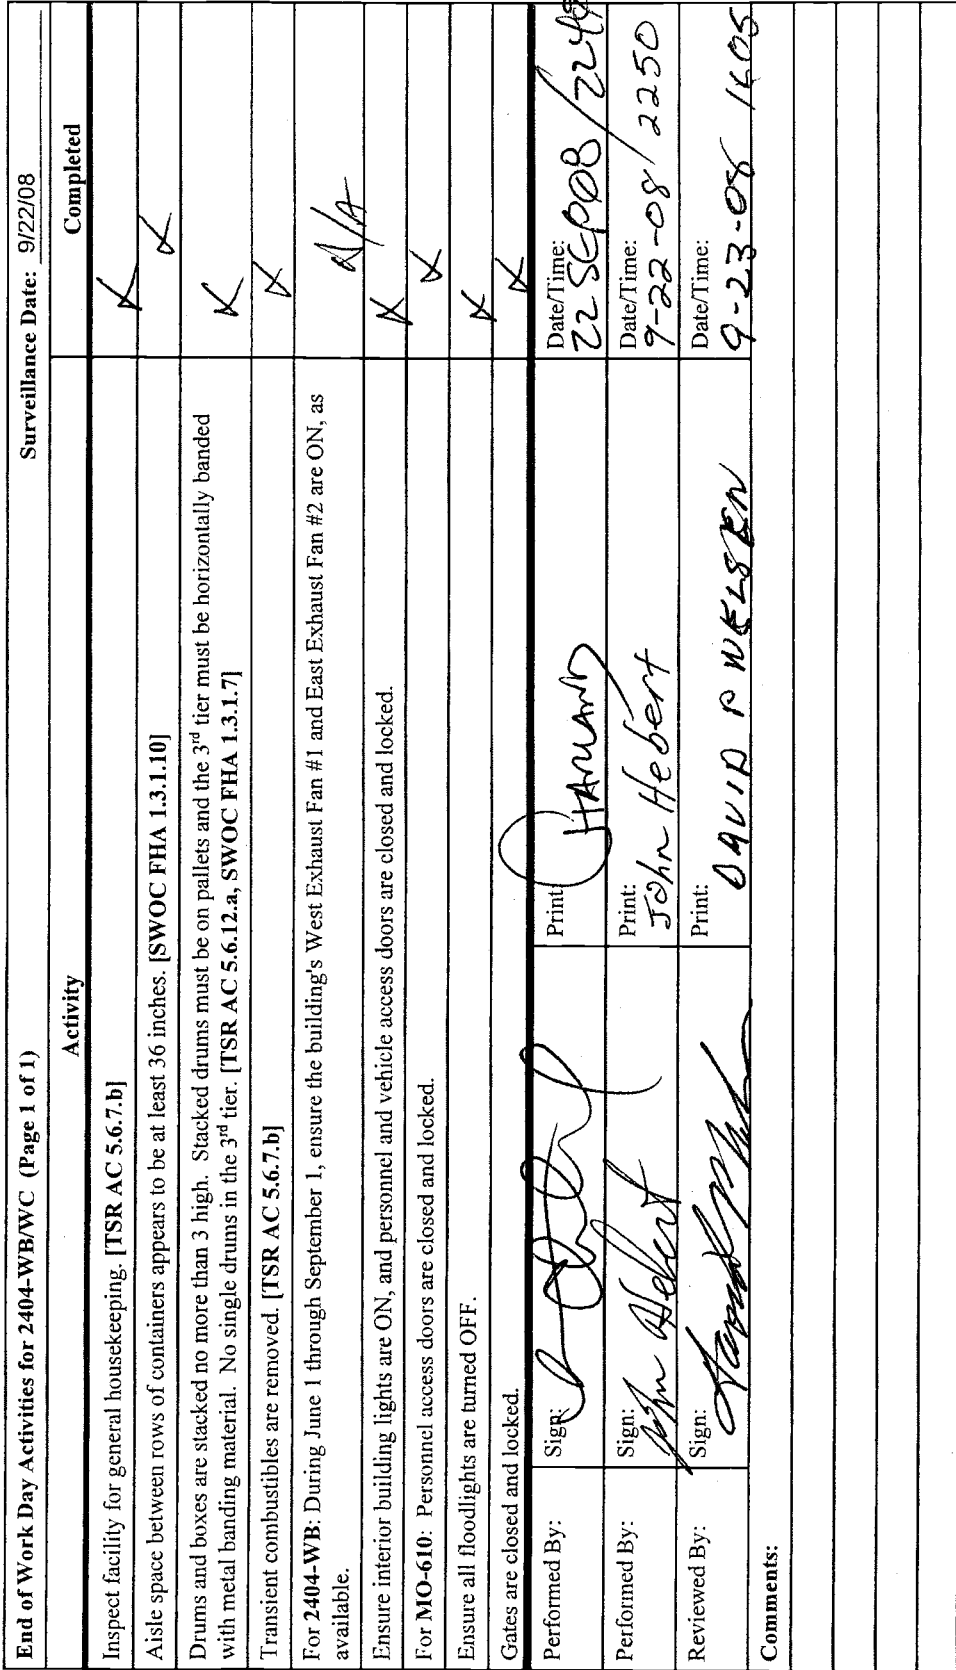 End of Work Day Activities for 2404-WB/WC (Page 1 of 1) Surveillance Date: 9/22/08
Activity Completed
Inspect facility for general housekeeping. [TSR AC 5.6.7.b]
Aisle space between rows of containers appears to be at least 36 inches. [SWOC FHA 1.3.1.10]
Drums and boxes are stacked no more than 3 high. Stacked drums must be on pallets and the 3rd tier must be horizontally banded
with metal banding material. No single drums in the 3rd tier. [TSR AC 5.6.12.a, SWOC FHA 1.3.1.7]
Transient combustibles are removed. [TSR AC 5.6.7.b]
For 2404-WB: During June 1 through September 1, ensure the building's West Exhaust Fan #1 and East Exhaust Fan #2 are ON, as N/A
available.
Ensure interior building lights are ON, and personnel and vehicle access doors are closed and locked.
For MO-610: Personnel access doors are closed and locked.
Ensure all floodlights are turned OFF.
Gates are closed and locked.
Performed By: Sign: Print: Date/Time:
22 SEP08 /
Performed By: Sign: Print: Date/Time:
John Hebert John Hebert 9-22-08 / 2250
Reviewed By: Sign: Print: Date/Time:
DAVID P 9-23-08 1605
Comments: